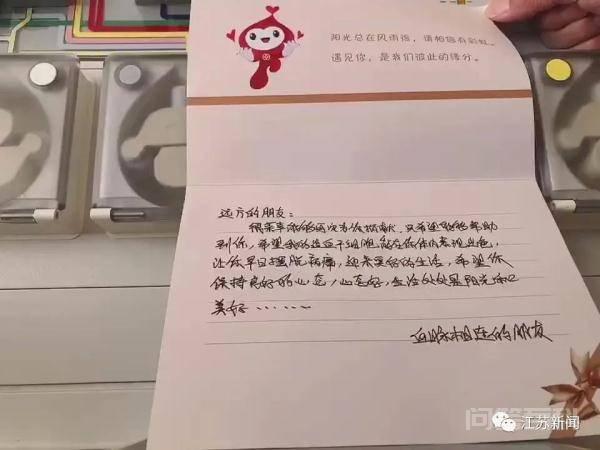 阳光总在风雨后，请相信有彩虹。
遇见你，是我们彼此的缘分。
远方的朋友：
很荣幸能够再次为你捐献，只希望能够帮助
到你，希望我的造血干细胞能在你体内表现出色，
让你早日摆脱病痛，迎来美好的生活，希望你
保持良好的心态，心态好，生活处处是阳光和
美好……
血脉相连的朋友
江苏新闻